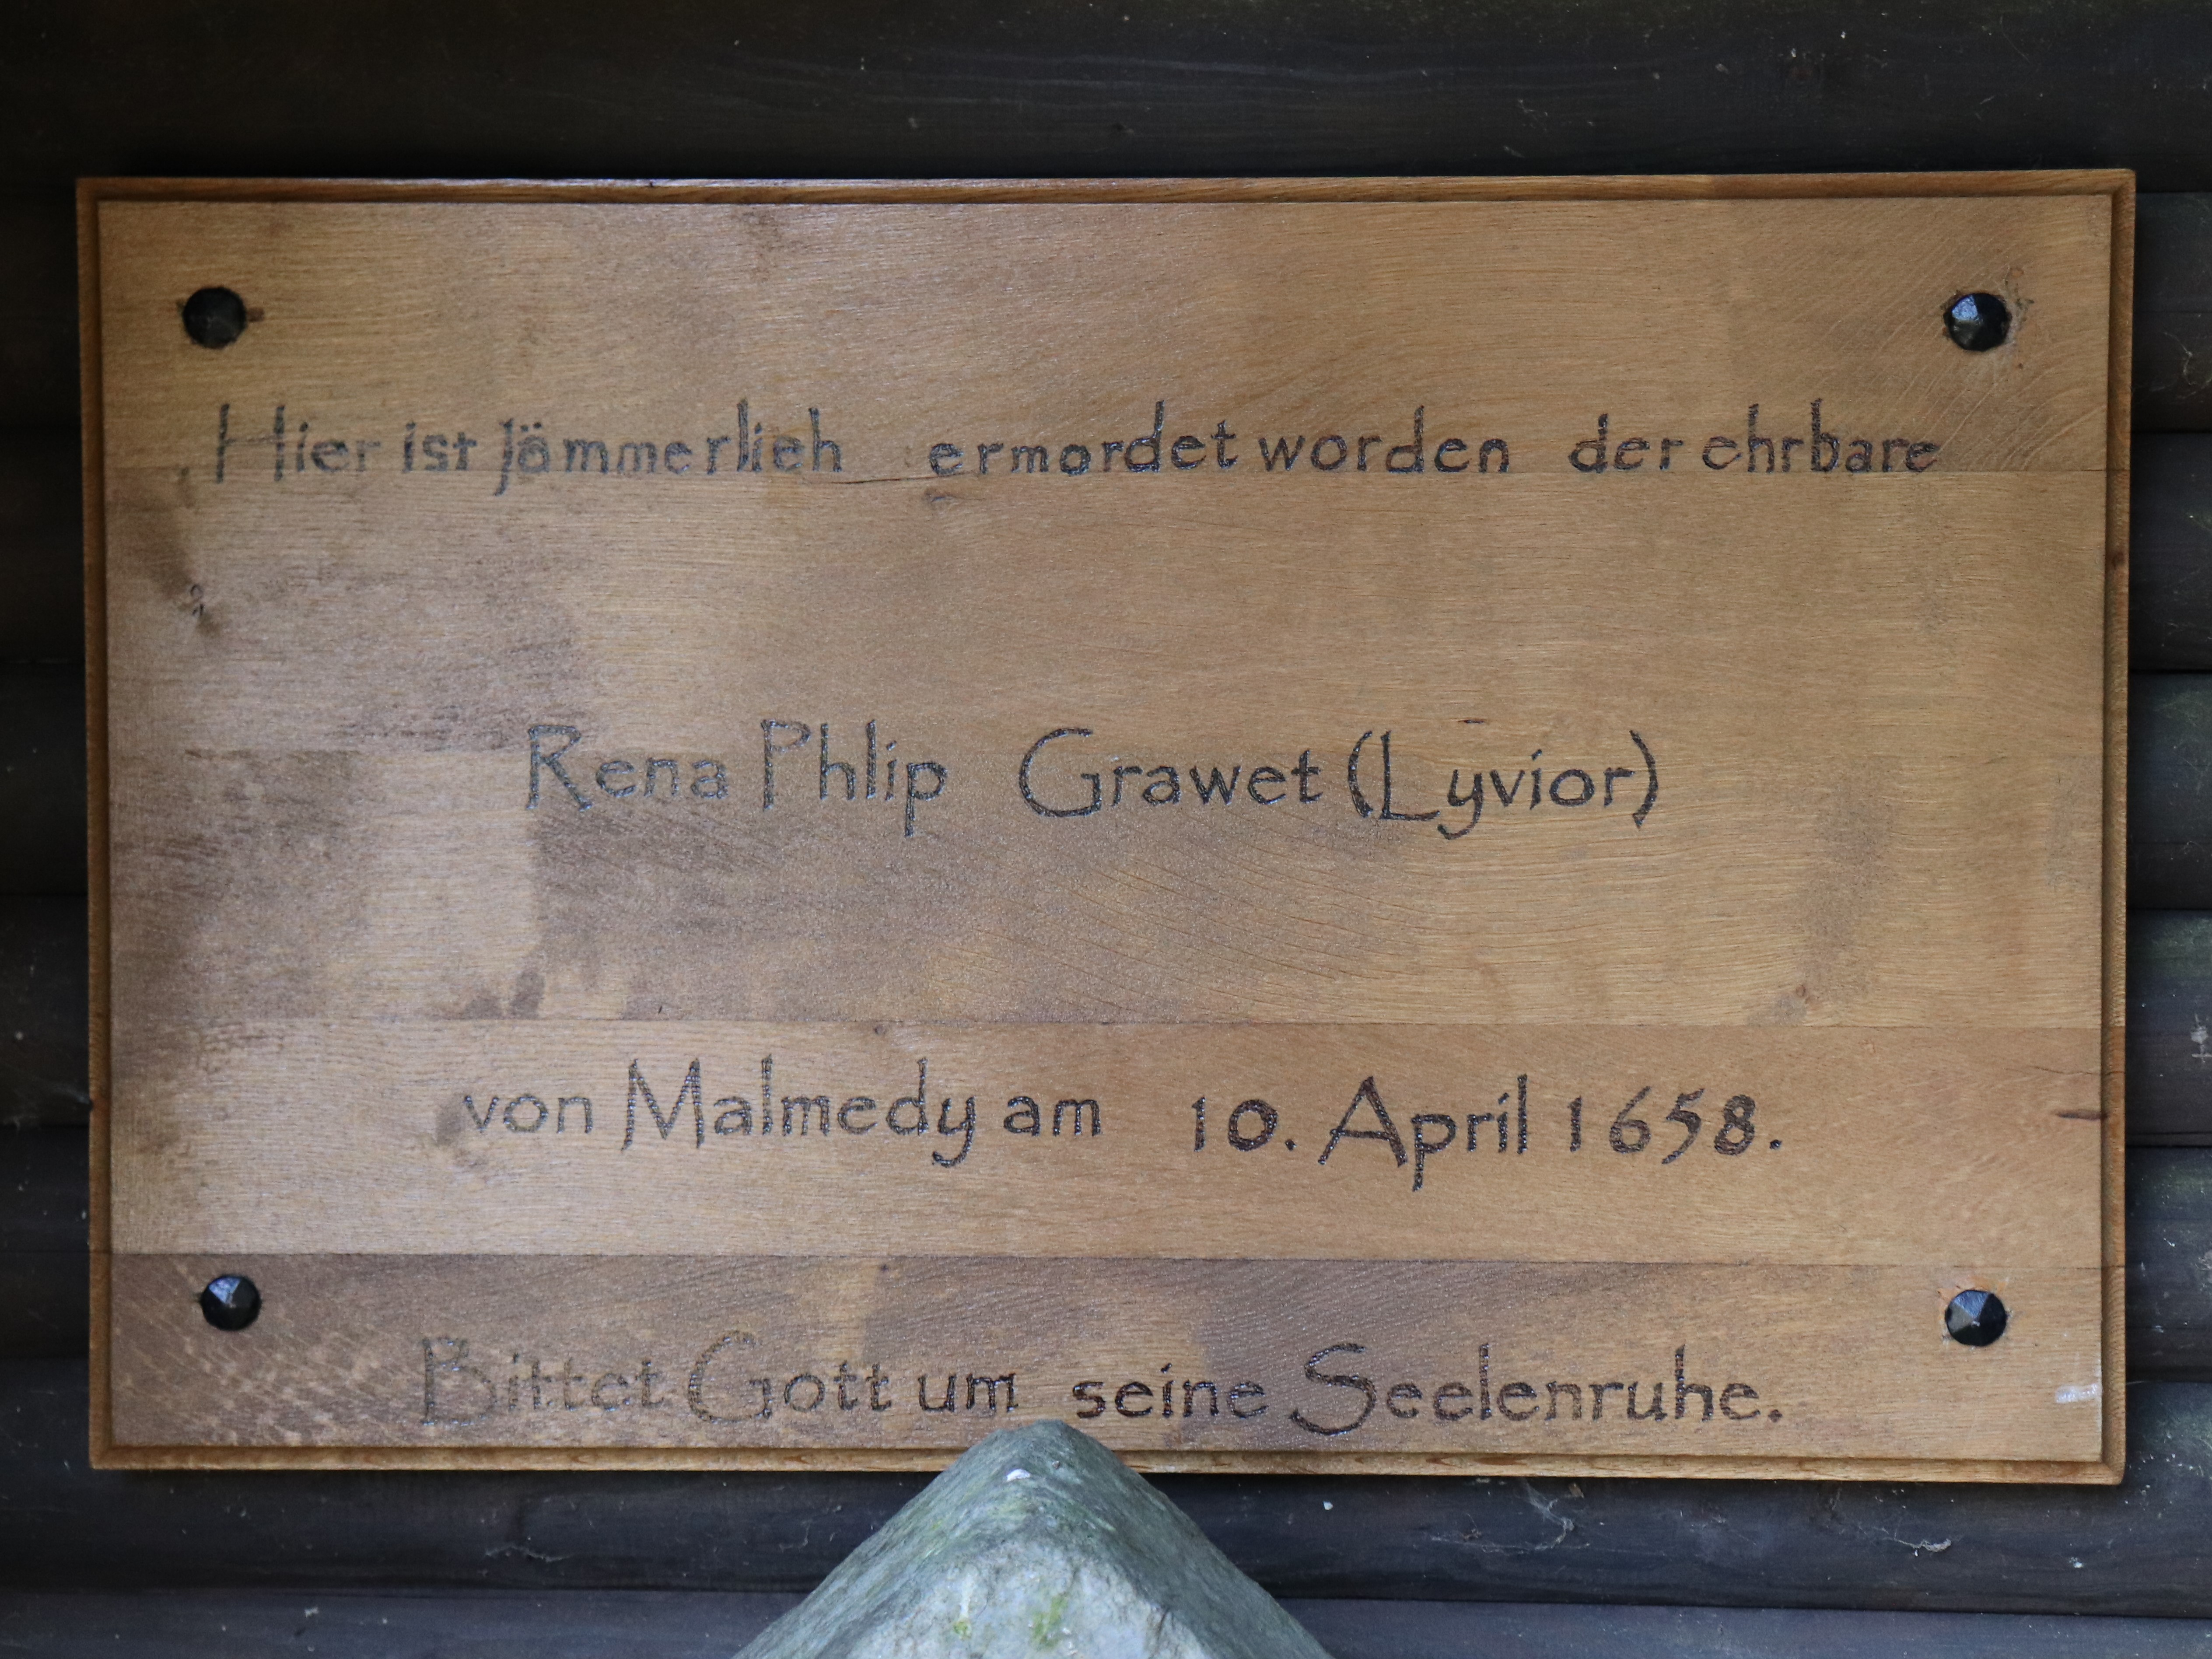 Hier ist jämmerlich ermordet worden der ehrbare
Rena Phlip Grawet (Lyvior)
von Malmedy am 10. April 1658.
Bittet Gott um seine Seelenruhe.